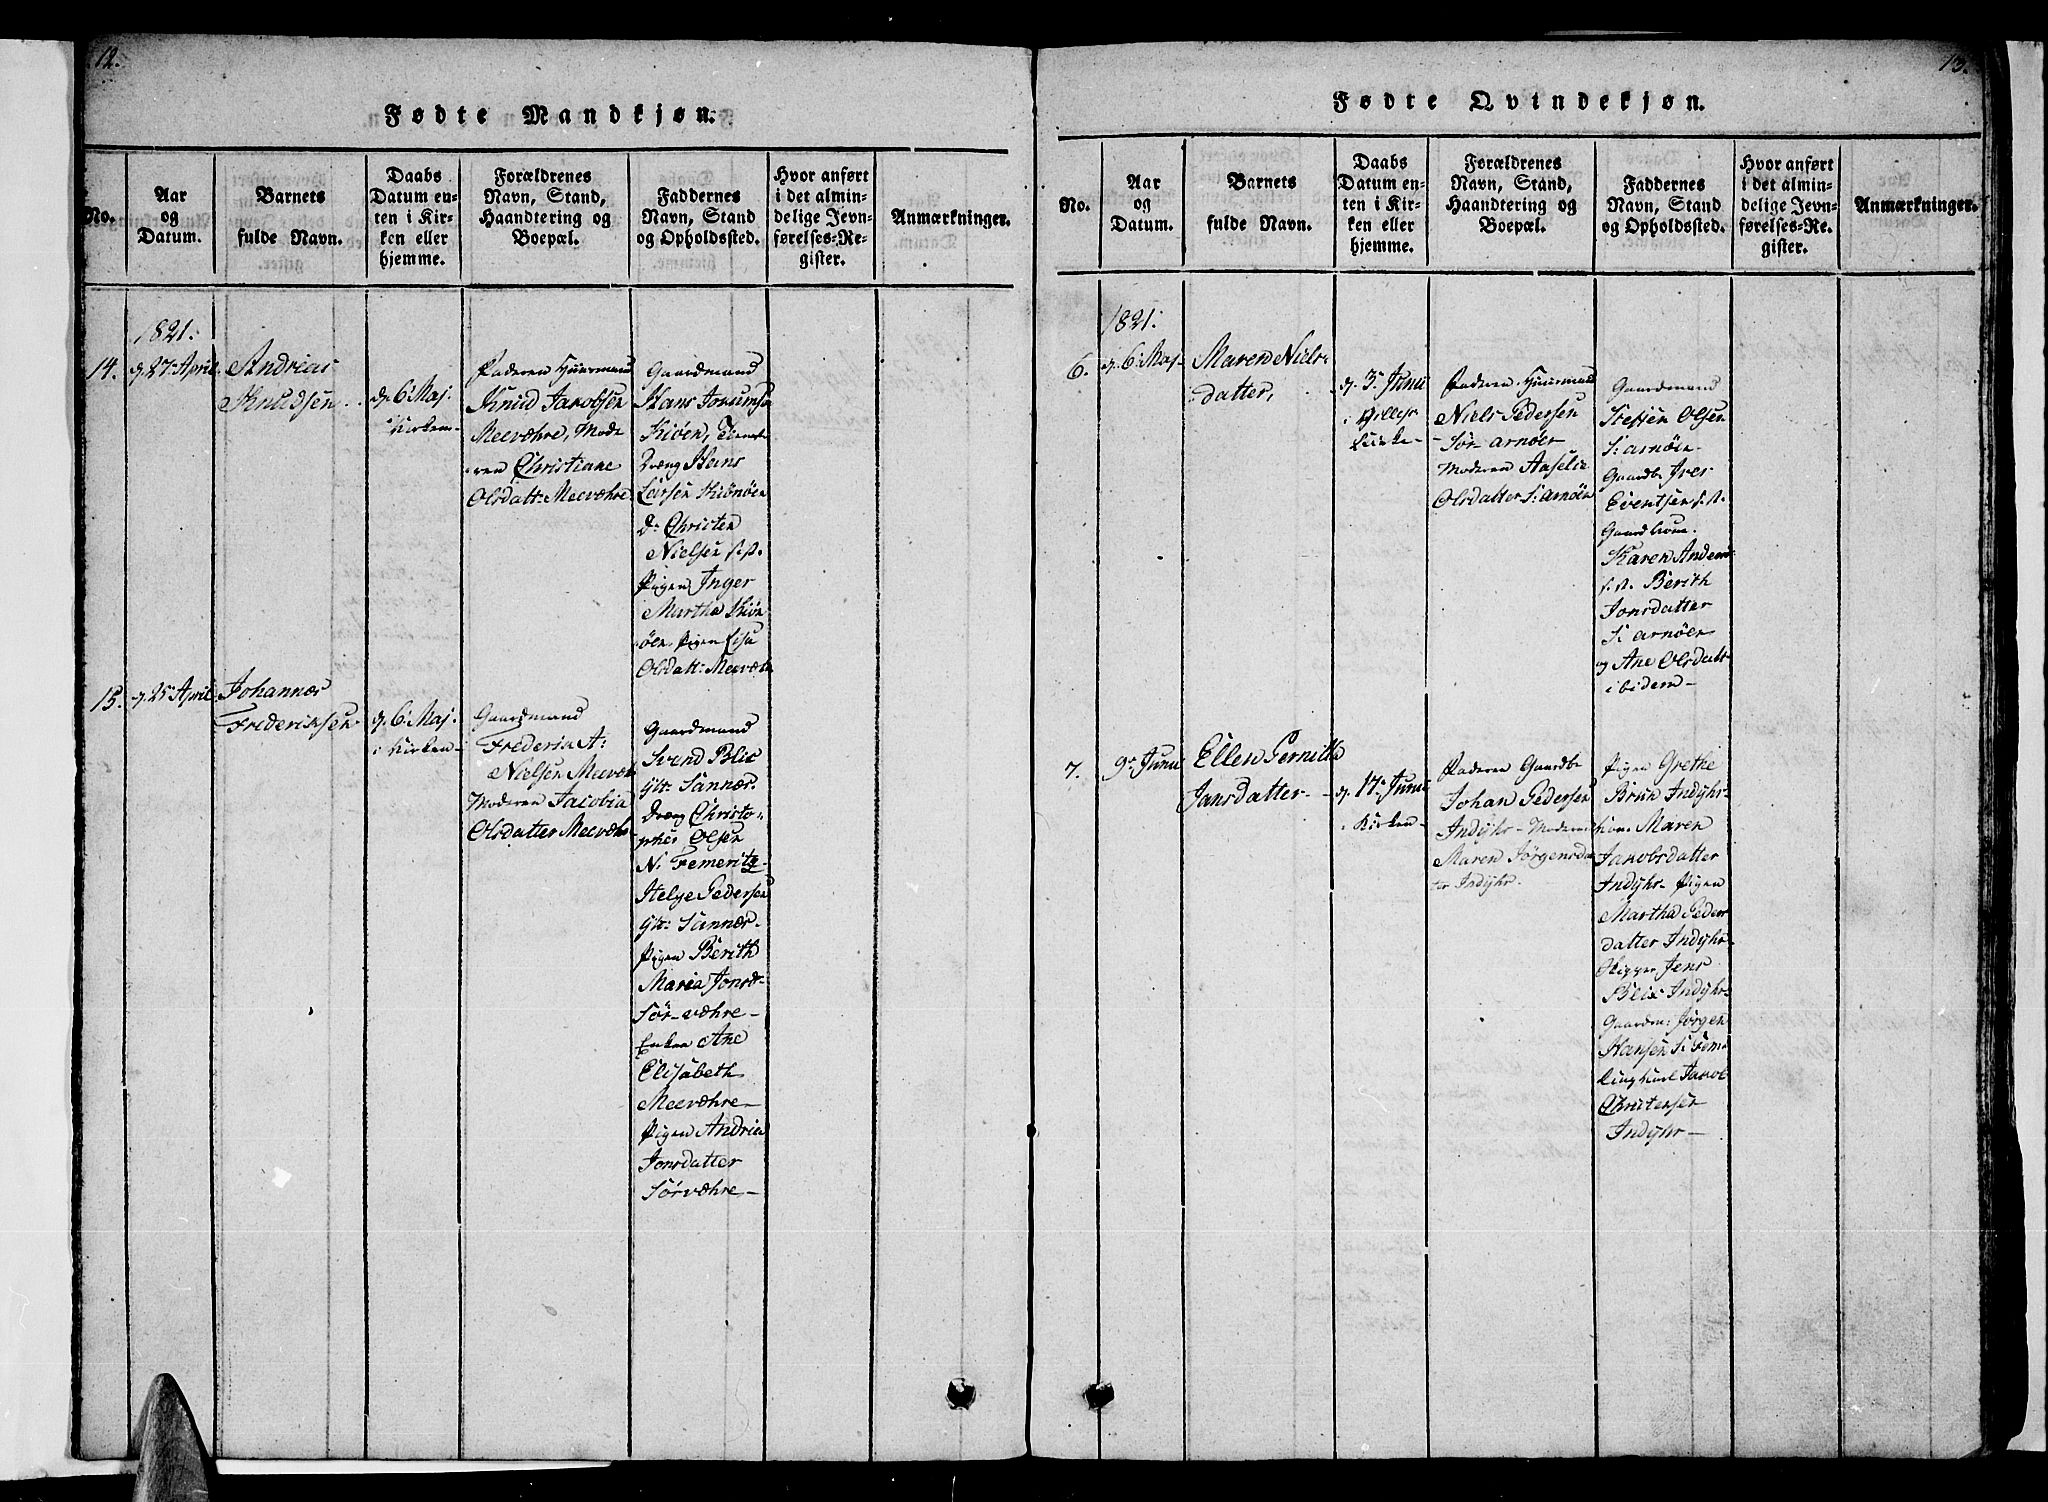 12.
Fødte Mandkjøn.
No.
Aar
og
Datum.
Barnets
fulde Navn.
Daabs
Datum en-
ten i Kir-
ken eller
hjemme.
Forældrenes
Navn, Stand,
Haandtering og
Boepæl.
Faddernes
Navn, Stand
og Opholdssted.
Hvor anført
i det almin-
delige Jevn-
førelses-Re-
gister.
Anmærkninger.
1821.
14.
d. 27 April
Andreas
Knudsen
d. 6 Maj.
i Kirken-
Faderen Huusmand
Knud Jakobsen
Meevæhre, Mode
ren Christiane
Olsdatt: Meevæhre
Gaardmand
Hans
Kiöen,
Dreng Hans
Larsen Kiönöen
D: Christen
Nielsen s. st.
Pigen Inger
Martha Kiön
öen, Pigen Lisa
Olsdatt: Meevæhr
15.
d. 25 April
Johannes
Frederiksen
d. 6 Maj.
i Kirken-
Gaardmand
Frederik A:
Nielsen Meevæh
Moderen Jacobia
Olsdatter Meevæhr
Gaardmand
Svend Blix
Yt: Sannæs.
Dreng Christo-
pher Olsen
N: Femeritz-
Helge Pedersen
Yt: Sannæs-
Pigen Berith
Maria Jonsd-
Sør-væhre-
Enken Ane
Elisabeth
Meevæhre-
Pigen Andria
Jonsdatter
Sörvæhre-
13.
Fødte Qvindekjøn.
No.
Aar
og
Datum.
Barnets
fulde Navn.
Daabs
Datum en-
ten i Kir-
ken eller
hjemme.
Forældrenes
Navn, Stand,
Haandtering og
Boepæl.
Faddernes
Navn, Stand
og Opholdssted.
Hvor anført
i det almin-
delige Jevn-
førelses-Re-
gister.
Anmærkninger.
1821.
6.
d. 6 Maj-
Maren Niels-
datter,
d. 3 Junii
i
Kirke-
Faderen Huusmand
Niels Pedersen
-Sör arnöer
Moderen Aaselie
Olsdatter S: arnöen
Gaardmand
Steffen Olsen
S: arnöen-
Gaardb. Iver
Eventsen s. st.
Gaardkone
Karen Anders
s. st. Berith
Jonsdatter
S: arnöer
og Ane Olsdatt
ibidem-
7.
9 Junii
Ellen Pernille
Jansdatter-
d. 17 Junii
i Kirken-
Faderen Gaardb
Johan Pedersen
Indyhr- Moderen
Maren Jørgensda
ter Indyhr.
Pigen Grethe
Brun Indyhr-
kone Maren
Jakobsdatter
Indyhr- Pigen
Martha Peders
datter Indyhr-
Skipper Jens
Blix Indyhr-
Gaardm: Jørgen
Hansen S: Fem
Jakob
Christensen
Indyhr-